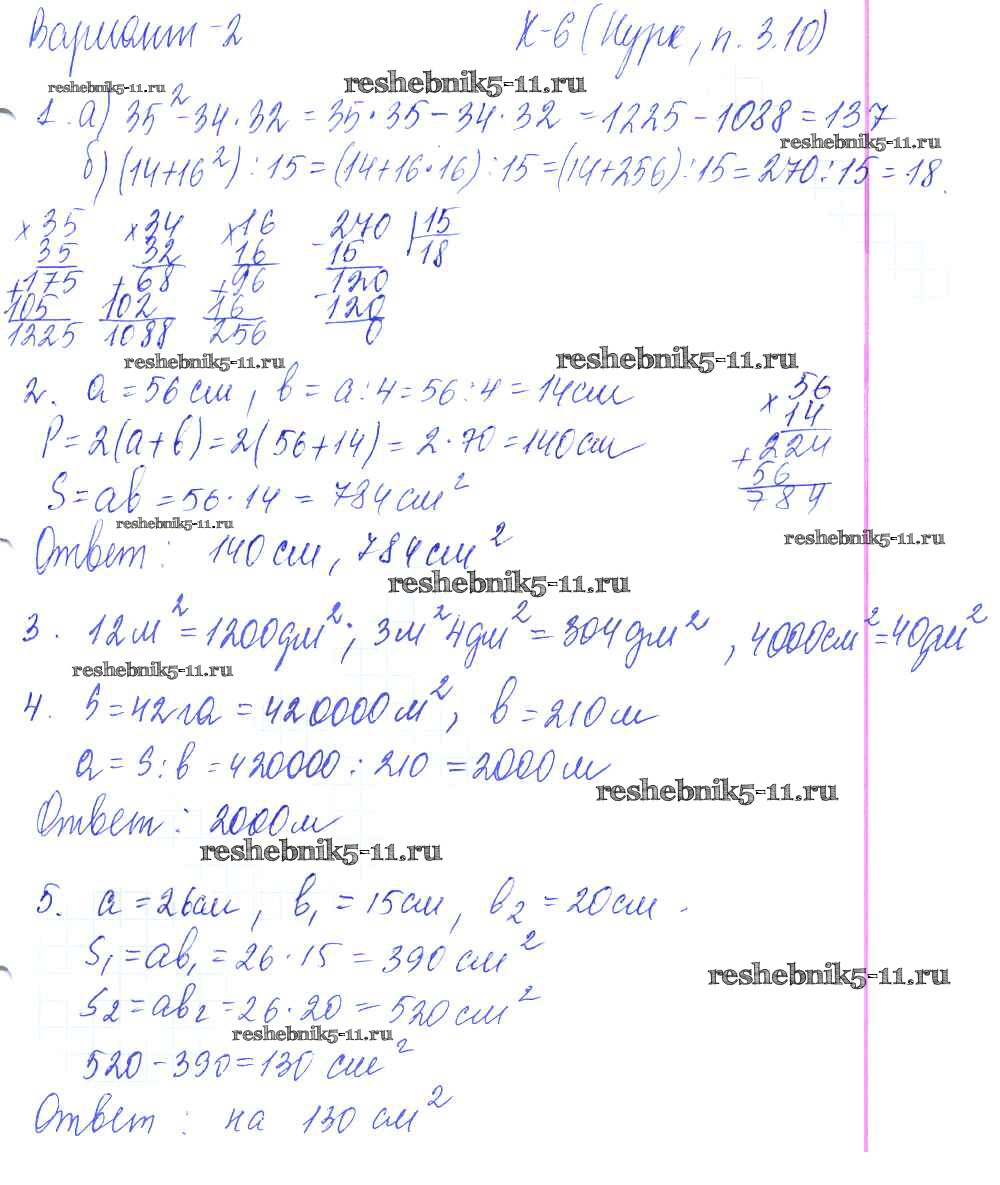 Вариант-2 К-6 (Нурк, п. 3.10)
reshebnik5-11.ru reshebnik5-11.ru
1. а) 35² - 34·32 = 35·35 - 34·32 = 1225 - 1088 = 137
reshebnik5-11.ru
б) (14+16²) : 15 = (14+16·16) : 15 = (14+256) : 15 = 270 : 15 = 18.
× 35 × 34 × 16 - 270 | 15
35 32 16 15 18
+ 175 + 68 + 96 - 120
105 102 16 120
1225 1088 256 0
reshebnik5-11.ru reshebnik5-11.ru
2. a = 56 см, в = а : 4 = 56 : 4 = 14 см
P = 2(a+b) = 2(56+14) = 2·70 = 140 см
S = ab = 56·14 = 784 см²
× 56
14
+ 224
56
784
reshebnik5-11.ru
reshebnik5-11.ru
Ответ: 140 см, 784 см²
reshebnik5-11.ru
3. 12 м² = 1200 дм²; 3 м² 4 дм² = 304 дм², 4000 см² = 40 дм²
reshebnik5-11.ru
4. S = 42 га = 420000 м², в = 210 м
a = S : в = 420000 : 210 = 2000 м
reshebnik5-11.ru
Ответ: 2000 м
reshebnik5-11.ru
5. a = 26 см, в₁ = 15 см, в₂ = 20 см.
S₁ = ав₁ = 26·15 = 390 см²
reshebnik5-11.ru
S₂ = ав₂ = 26·20 = 520 см²
reshebnik5-11.ru
520 - 390 = 130 см²
Ответ: на 130 см²